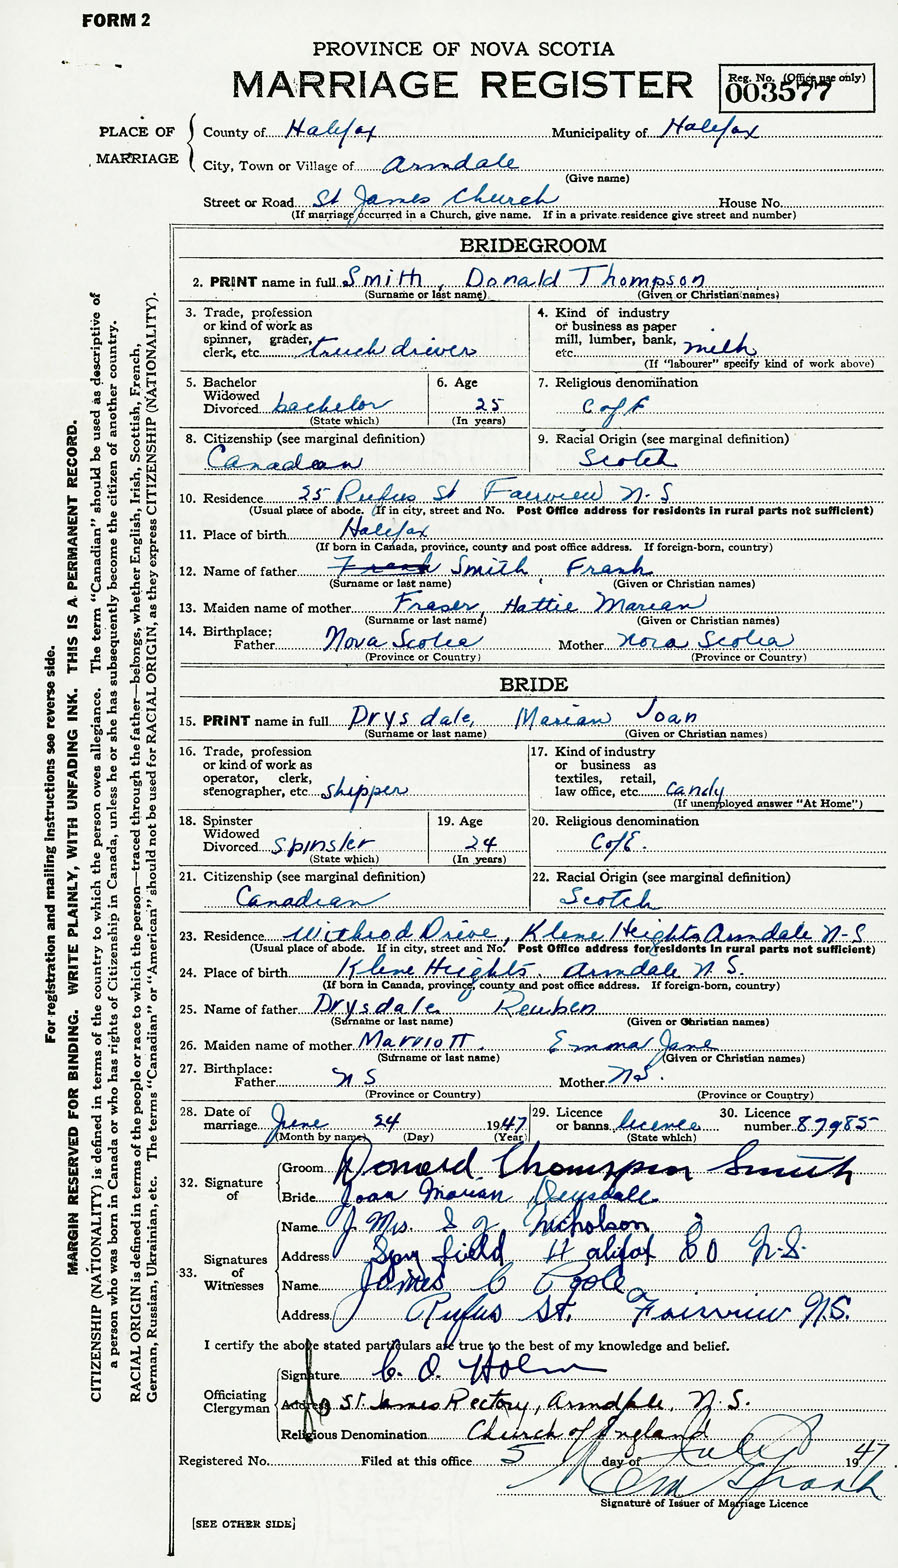 FORM 2
PROVINCE OF NOVA SCOTIA
MARRIAGE REGISTER
Reg. No. (Office use only)
003577
PLACE OF MARRIAGE
County of Halifax Municipality of Halifax
City, Town or Village of Armdale
(Give name)
Street or Road St James Church House No.
(If marriage occurred in a Church, give name. If in a private residence give street and number)
BRIDEGROOM
2. PRINT name in full Smith, Donald Thompson
(Surname or last name) (Given or Christian names)
3. Trade, profession or kind of work as spinner, grader, clerk, etc. truck driver
4. Kind of industry or business as paper mill, lumber, bank, etc. milk
(If "labourer" specify kind of work above)
5. Bachelor Widowed Divorced bachelor
(State which)
6. Age 25
(In years)
7. Religious denomination
C of E
8. Citizenship (see marginal definition)
Canadian
9. Racial Origin (see marginal definition)
Scotch
10. Residence 25 Rufus St Fairview N-S
(Usual place of abode. If in city, street and No. Post Office address for residents in rural parts not sufficient)
11. Place of birth Halifax
(If born in Canada, province, county and post office address. If foreign-born, country)
12. Name of father Frank Smith, Frank
(Surname or last name) (Given or Christian names)
13. Maiden name of mother Fraser, Hattie Marian
(Surname or last name) (Given or Christian names)
14. Birthplace:
Father Nova Scotia Mother Nova Scotia
(Province or Country) (Province or Country)
BRIDE
15. PRINT name in full Drysdale, Marian Joan
(Surname or last name) (Given or Christian names)
16. Trade, profession or kind of work as operator, clerk, stenographer, etc. shipper
17. Kind of industry or business as textiles, retail, law office, etc. candy
(If unemployed answer "At Home")
18. Spinster Widowed Divorced Spinster
(State which)
19. Age 24
(In years)
20. Religious denomination
C of E.
21. Citizenship (see marginal definition)
Canadian
22. Racial Origin (see marginal definition)
Scotch
23. Residence Withrod Drive, Klene Heights Armdale N-S
(Usual place of abode. If in city, street and No. Post Office address for residents in rural parts not sufficient)
24. Place of birth Klene Heights. Armdale N.S.
(If born in Canada, province, county and post office address. If foreign-born, country)
25. Name of father Drysdale Reuben
(Surname or last name) (Given or Christian names)
26. Maiden name of mother Marriott. Emma Jane
(Surname or last name) (Given or Christian names)
27. Birthplace:
Father N S Mother N S.
(Province or Country) (Province or Country)
28. Date of marriage June 24 1947
(Month by name) (Day) (Year)
29. Licence or banns licence
(State which)
30. Licence number 87985
32. Signature of
Groom Donald Thompson Smith
Bride Joan Marian Drysdale
33. Signatures of Witnesses
Name Mrs. S J Nicholson
Address Spryfield Halifax CO N.S.
Name James C Poole
Address Rufus St. Fairview N.S.
I certify the above stated particulars are true to the best of my knowledge and belief.
Officiating Clergyman
Signature C. O. Holm
Address St. James Rectory, Armdale, N.S.
Religious Denomination Church of England
Registered No. Filed at this office 5 day of July 1947
Signature of Issuer of Marriage Licence
[SEE OTHER SIDE]
For registration and mailing instructions see reverse side.
MARGIN RESERVED FOR BINDING. WRITE PLAINLY, WITH UNFADING INK. THIS IS A PERMANENT RECORD.
CITIZENSHIP (NATIONALITY) is defined in terms of the country to which the person owes allegiance. The term "Canadian" should be used as descriptive of
a person who was born in Canada or who has rights of Citizenship in Canada, unless he or she has subsequently become the citizen of another country.
RACIAL ORIGIN is defined in terms of the people or race to which the person—traced through the father—belongs, whether English, Irish, Scottish, French,
German, Russian, Ukrainian, etc. The terms "Canadian" or "American" should not be used for RACIAL ORIGIN, as they express CITIZENSHIP (NATIONALITY).